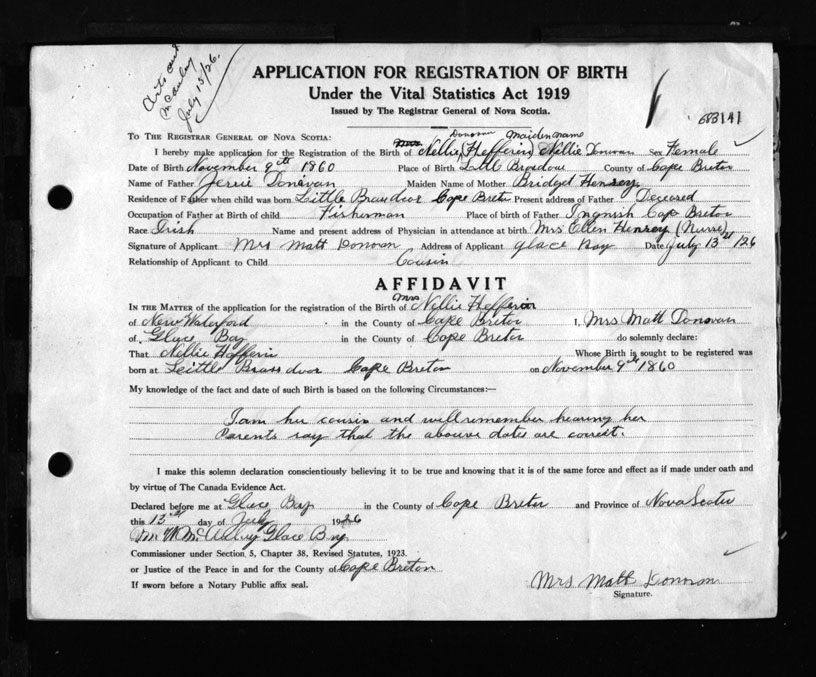 Arts and
McAulay
July 15/26.
683141
APPLICATION FOR REGISTRATION OF BIRTH
Under the Vital Statistics Act 1919
Issued by The Registrar General of Nova Scotia.
TO THE REGISTRAR GENERAL OF NOVA SCOTIA:
Donovan Maiden name
I hereby make application for the Registration of the Birth of Nellie (Hefferin) Nellie Donovan Sex Female
Date of Birth November 9th 1860 Place of Birth Cape Breton County of Cape Breton
Name of Father Jerrie Donovan Maiden Name of Mother Bridget Henrey
Residence of Father when child was born Little Brasdor Cape Breton Present address of Father Deceased
Occupation of Father at Birth of child Fisherman Place of birth of Father Ingnish Cape Breton
Race Irish Name and present address of Physician in attendance at birth Mrs Ellen Henrey (Nurse)
Signature of Applicant Mrs Matt Donovan Address of Applicant Glace Bay Date July 13th /26
Relationship of Applicant to Child Cousin
AFFIDAVIT
IN THE MATTER of the application for the registration of the Birth of Mrs Nellie Hefferin
of New Waterford in the County of Cape Breton I, Mrs Matt Donovan
of, Glace Bay in the County of Cape Breton do solemnly declare:
That Nellie Hefferin Whose Birth is sought to be registered was
born at Leittle Brass dvor Cape Breton on November 9th 1860
My knowledge of the fact and date of such Birth is based on the following Circumstances:—
I am her cousin and will remember hearing her
Parents say that the abouve dates are correct.
I make this solemn declaration conscientiously believing it to be true and knowing that it is of the same force and effect as if made under oath and
by virtue of The Canada Evidence Act.
Declared before me at Glace Bay in the County of Cape Breton and Province of Nova Scotia
this 13th day of July 1926
Glace Bay
Commissioner under Section 5, Chapter 38, Revised Statutes, 1923.
or Justice of the Peace in and for the County of Cape Breton
If sworn before a Notary Public affix seal.
Mrs Matt Donovan
Signature.